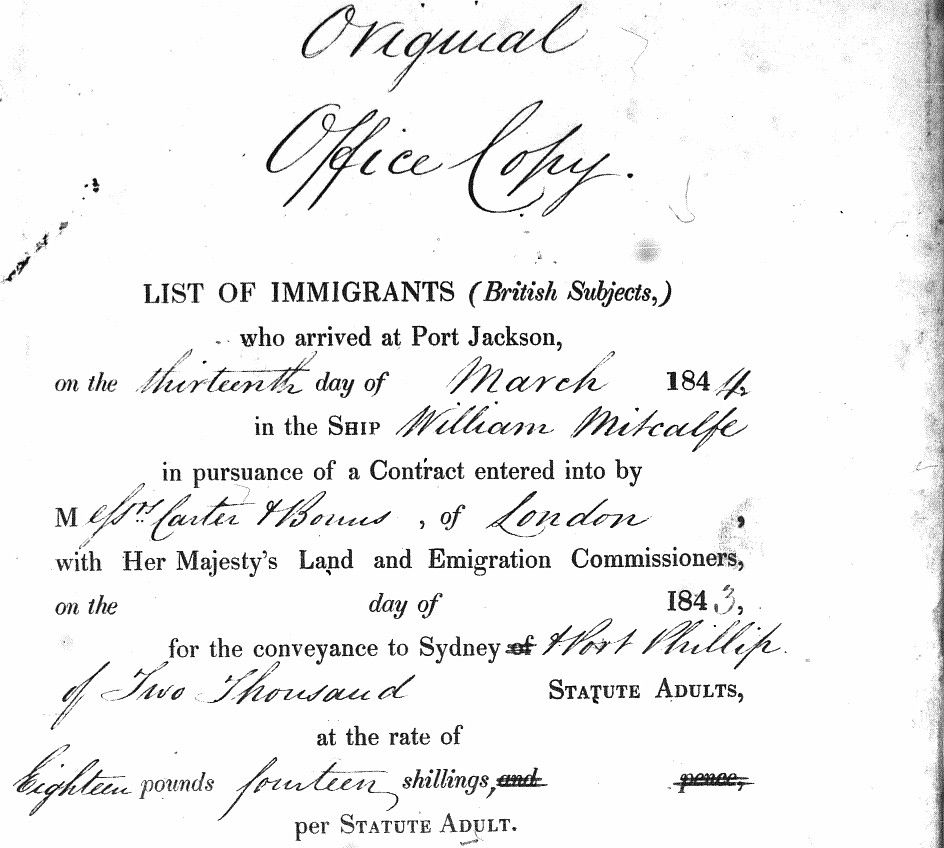 Original
Office Copy.
LIST OF IMMIGRANTS (British Subjects,)
who arrived at Port Jackson,
on the thirteenth day of March 1844,
in the SHIP William Mitcalfe
in pursuance of a Contract entered into by
Messrs Carter & Bonus, of London,
with Her Majesty's Land and Emigration Commissioners,
on the day of 1843,
for the conveyance to Sydney of & Port Phillip.
of Two Thousand STATUTE ADULTS,
at the rate of
Eighteen pounds fourteen shillings, and pence,
per STATUTE ADULT.